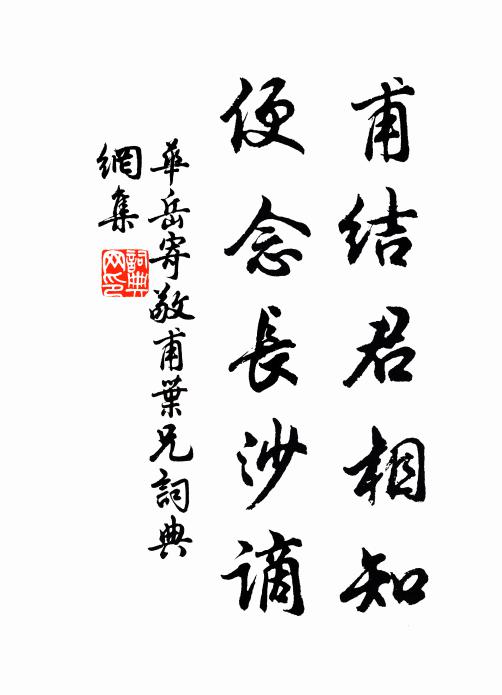 甫結君相知
便念長沙謫
華岳寄敬甫葉兄詞典
網集
詞典
网印